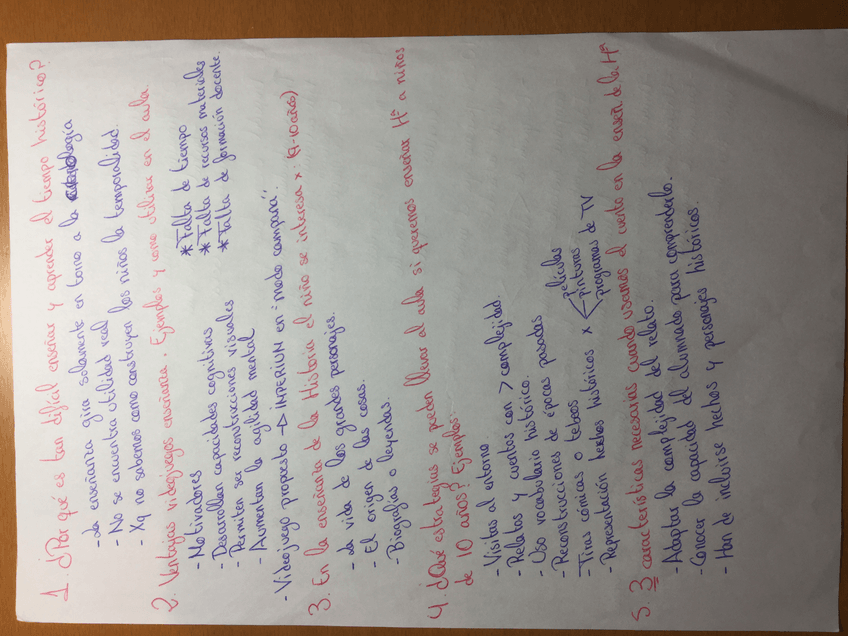 1. ¿Por qué es tan difícil enseñar y aprender el tiempo histórico?
- La enseñanza gira solamente en torno a la cronología
- No se encuentra utilidad real
- Xq no sabemos como construyen los niños la temporalidad.
2. Ventajas videojuegos enseñanza. Ejemplos y como utilizar en el aula.
- Motivadores
- Desarrollan capacidades cognitivas
- Permiten ser reconstrucciones visuales
- Aumentan la agilidad mental
* Falta de tiempo
* Falta de recursos materiales
* Falta de formación docente.
- Videojuego propuesto → IMPERIUM en "modo campaña".
3. En la enseñanza de la Historia el niño se interesa x: (9-10 años)
- La vida de los grandes personajes.
- El origen de las cosas.
- Biografías o leyendas.
4. ¿Qué estrategias se pueden llevar al aula si queremos enseñar Hª a niños
de 10 años? Ejemplos:
- Visitas al entorno
- Relatos y cuentos con > complejidad.
- Uso vocabulario histórico.
- Reconstrucciones de épocas pasadas
- Tiras cómicas o tebeos
- Representación hechos históricos x
películas
pinturas
programas de TV
5. 3 características necesarias cuando usamos el cuento en la enseñ. de la Hª
- Adaptar la complejidad del relato.
- Conocer la capacidad del alumnado para comprenderlo.
- Han de incluirse hechos y personajes históricos.